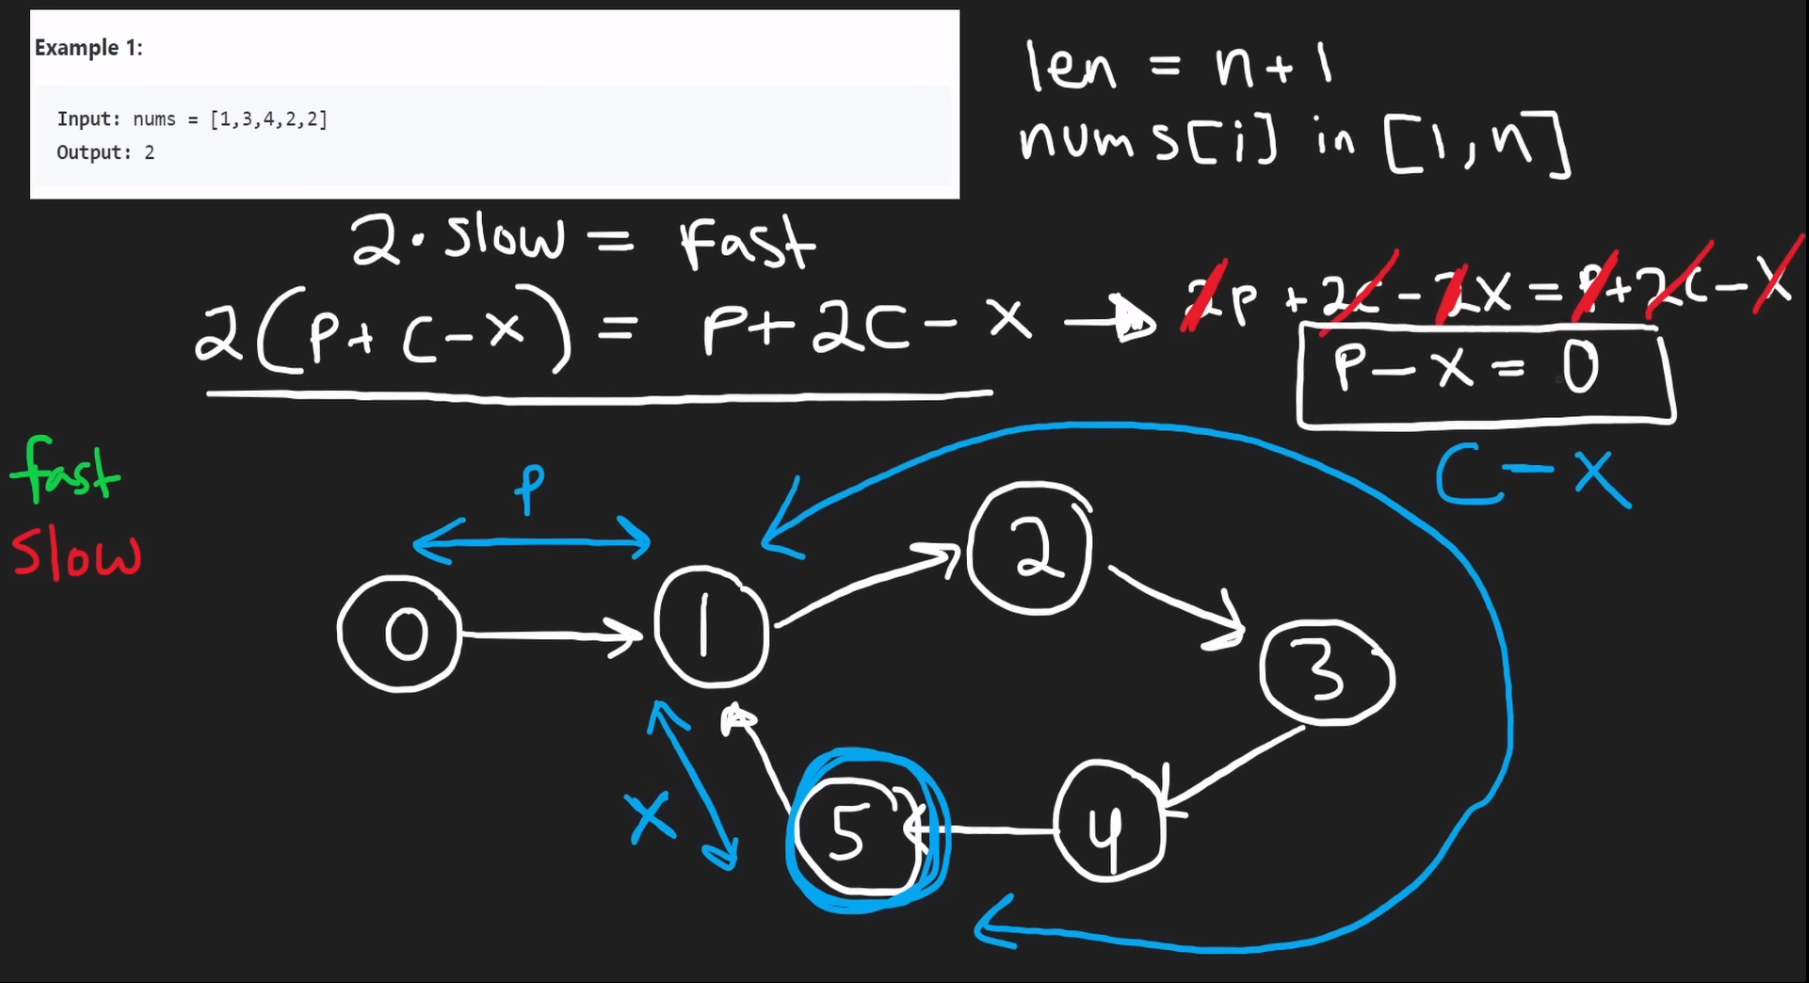 Example 1:
Input: nums = [1,3,4,2,2]
Output: 2
len = n+1
nums[i] in [1,n]
2·slow = Fast
2(P+C-X) = P+2C-X → 2P+2C-2X=P+2C-X
P-X=0
fast
slow
P
C-X
0
1
2
3
4
5
X